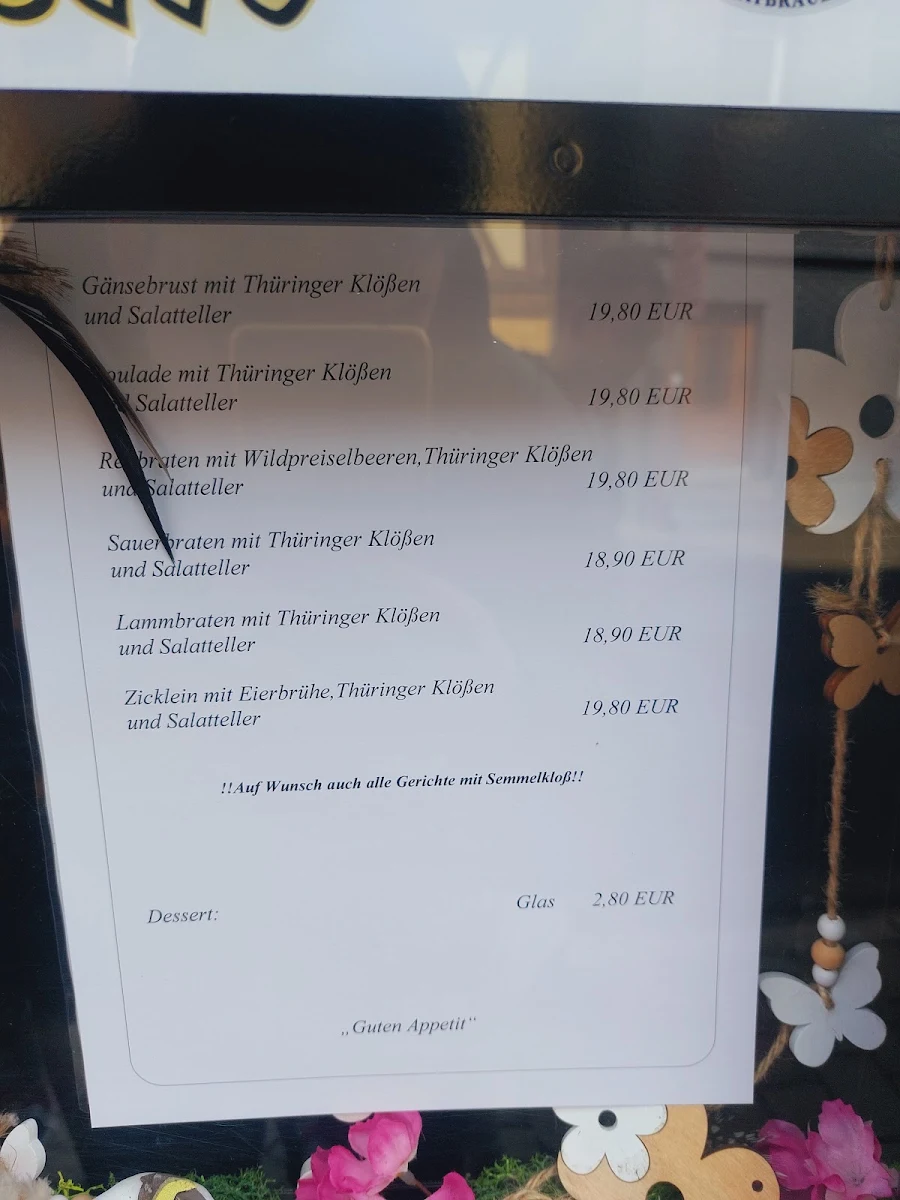 Gänsebrust mit Thüringer Klößen
und Salatteller 19,80 EUR
mit Thüringer Klößen
Salatteller 19,80 EUR
mit Wildpreiselbeeren,Thüringer Klößen
und Salatteller 19,80 EUR
Sauerbraten mit Thüringer Klößen
und Salatteller 18,90 EUR
Lammbraten mit Thüringer Klößen
und Salatteller 18,90 EUR
Zicklein mit Eierbrühe,Thüringer Klößen
und Salatteller 19,80 EUR
!!Auf Wunsch auch alle Gerichte mit Semmelkloß!!
Dessert: Glas 2,80 EUR
„Guten Appetit“